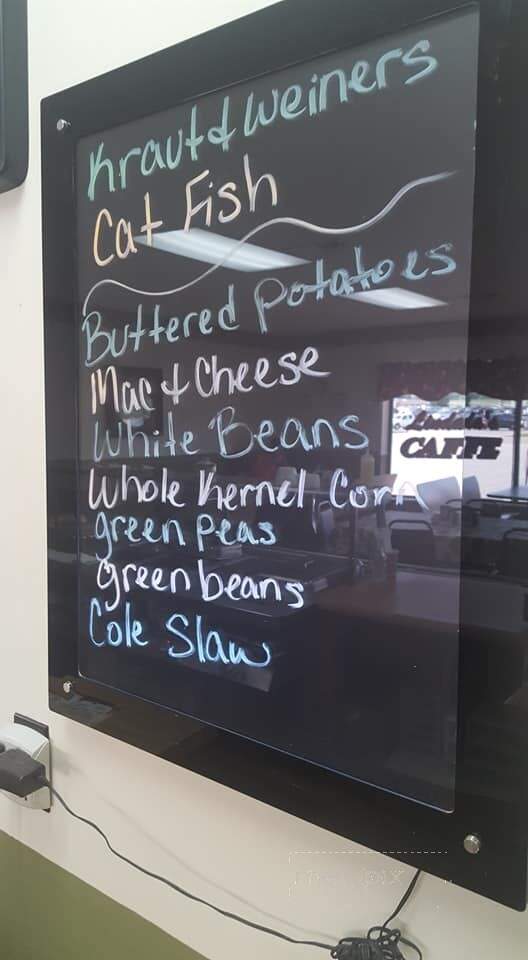 Kraut & Weiners
Cat Fish
Buttered Potatoes
Mac & Cheese
White Beans
Whole Kernel Corn
green Peas
green beans
Cole Slaw
CAFFE